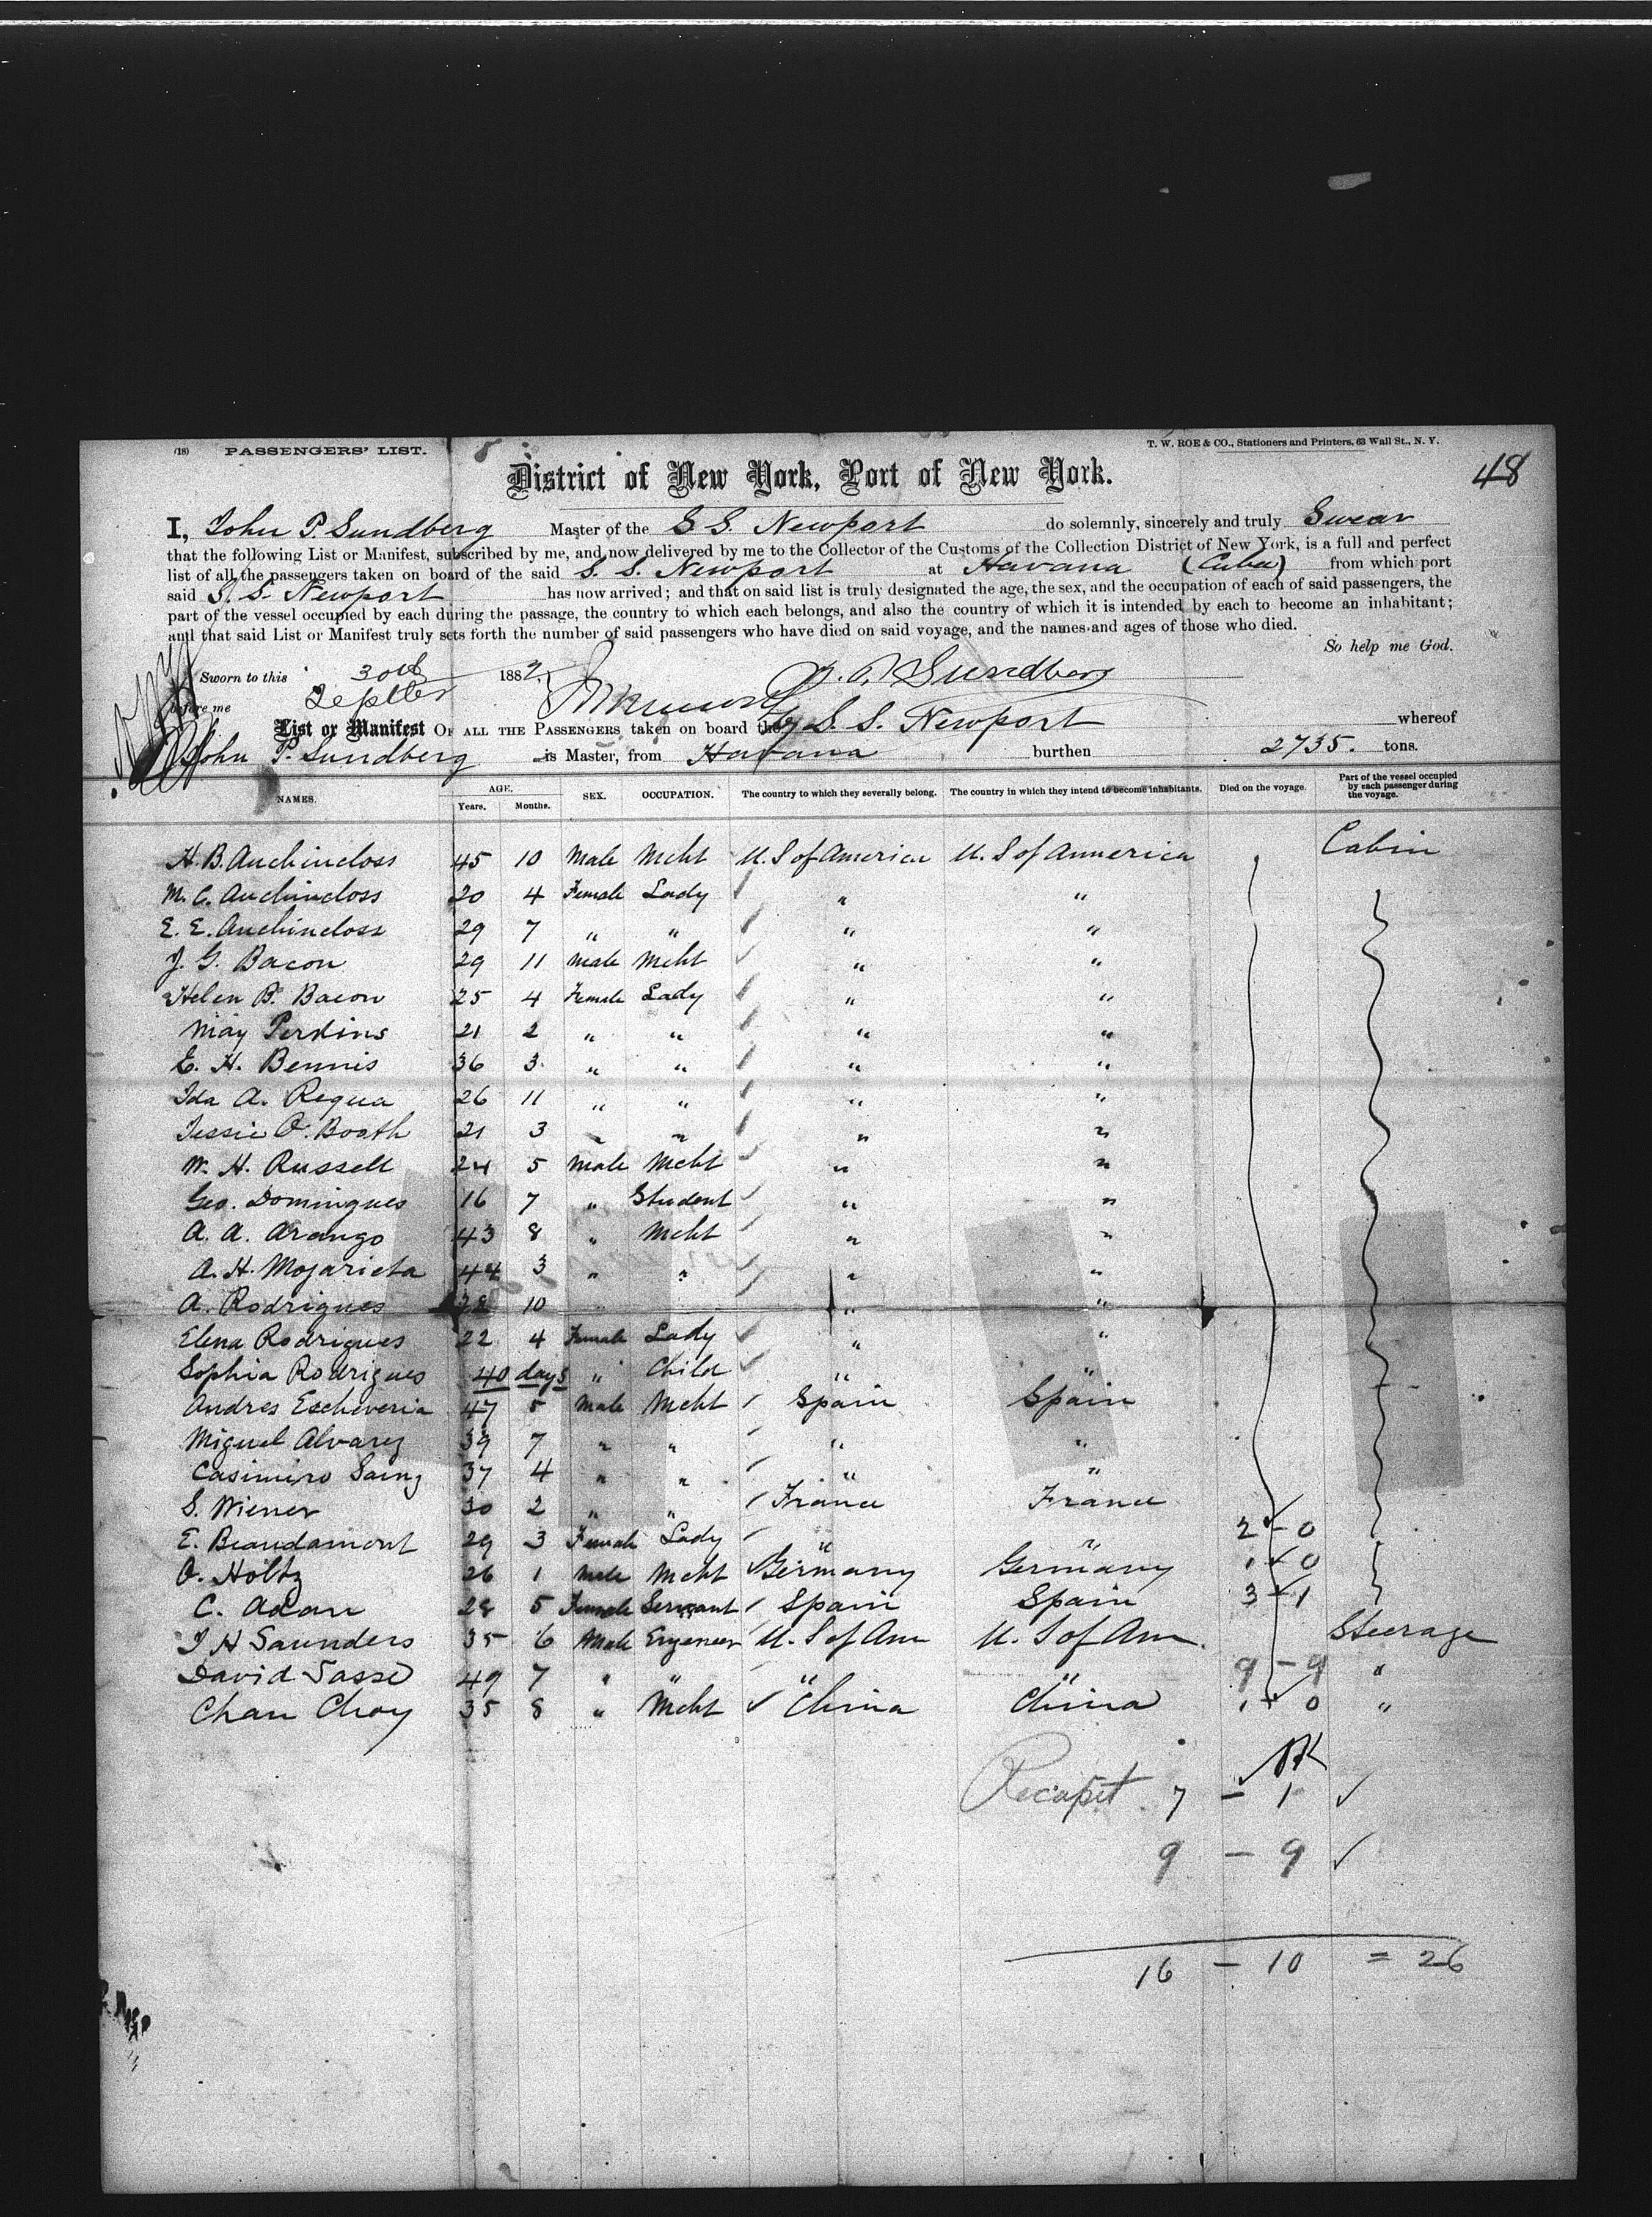 (18) PASSENGERS' LIST.
T. W. ROE & CO., Stationers and Printers, 63 Wall St., N. Y.
48
District of New York, Port of New York.
I, John P. Sundberg Master of the S S. Newport do solemnly, sincerely and truly Swear
that the following List or Manifest, subscribed by me, and now delivered by me to the Collector of the Customs of the Collection District of New York, is a full and perfect
list of all the passengers taken on board of the said S. S. Newport at Havana (Cuba) from which port
said S. S. Newport has now arrived; and that on said list is truly designated the age, the sex, and the occupation of each of said passengers, the
part of the vessel occupied by each during the passage, the country to which each belongs, and also the country of which it is intended by each to become an inhabitant;
and that said List or Manifest truly sets forth the number of said passengers who have died on said voyage, and the names and ages of those who died.
So help me God.
Sworn to this 30th 1882. J. P. Sundberg
before me Septber
List or Manifest OF ALL THE PASSENGERS taken on board the S. S. Newport whereof
John P. Sundberg is Master, from Havana burthen 2735. tons.
NAMES. AGE. Years. Months. SEX. OCCUPATION. The country to which they severally belong. The country in which they intend to become inhabitants. Died on the voyage. Part of the vessel occupied by each passenger during the voyage.
H. B. Auchincloss 45 10 Male Mcht U. S of America U. S of Annerica Cabin
M. C. Auchincloss 20 4 Female Lady " "
E. E. Auchincloss 29 7 " " " "
J. G. Bacon 29 11 Male Mcht " "
Helen B. Bacon 25 4 Female Lady " "
May Perkins 21 2 " " " "
E. H. Bennis 36 3 " " " "
Ida A. Requa 26 11 " " " "
Jessie O. Booth 21 3 " " " "
W. H. Russell 24 5 Male Mcht " "
Geo. Domingues 16 7 " Student " "
A. A. Arango 43 8 " Mcht " "
A. H. Mojarieta 44 3 " " " "
A. Rodrigues 28 10 " " "
Elena Rodrigues 22 4 Female Lady " "
Sophia Rodrigues 40 days " Child " "
Andres Escheveria 47 5 Male Mcht Spain Spain
Miguel Alvarez 39 7 " " " "
Casimiro Sainz 37 4 " " " "
S. Wiener 30 2 " " France France
E. Beaudamont 29 3 Female Lady " " 2 - 0
O. Holtz 26 1 Male Mcht Germany Germany 1 - 0
C. Adan 28 5 Female Servant Spain Spain 3 - 1
J H Saunders 35 6 Male Engeneer U. S of Am U. S of Am. Steerage
David Sasse 49 7 " " " " 9 - 9 "
Chan Choy 35 8 " Mcht China China 1 - 0 "
Recapet 7 - 1
9 - 9
16 - 10 = 26